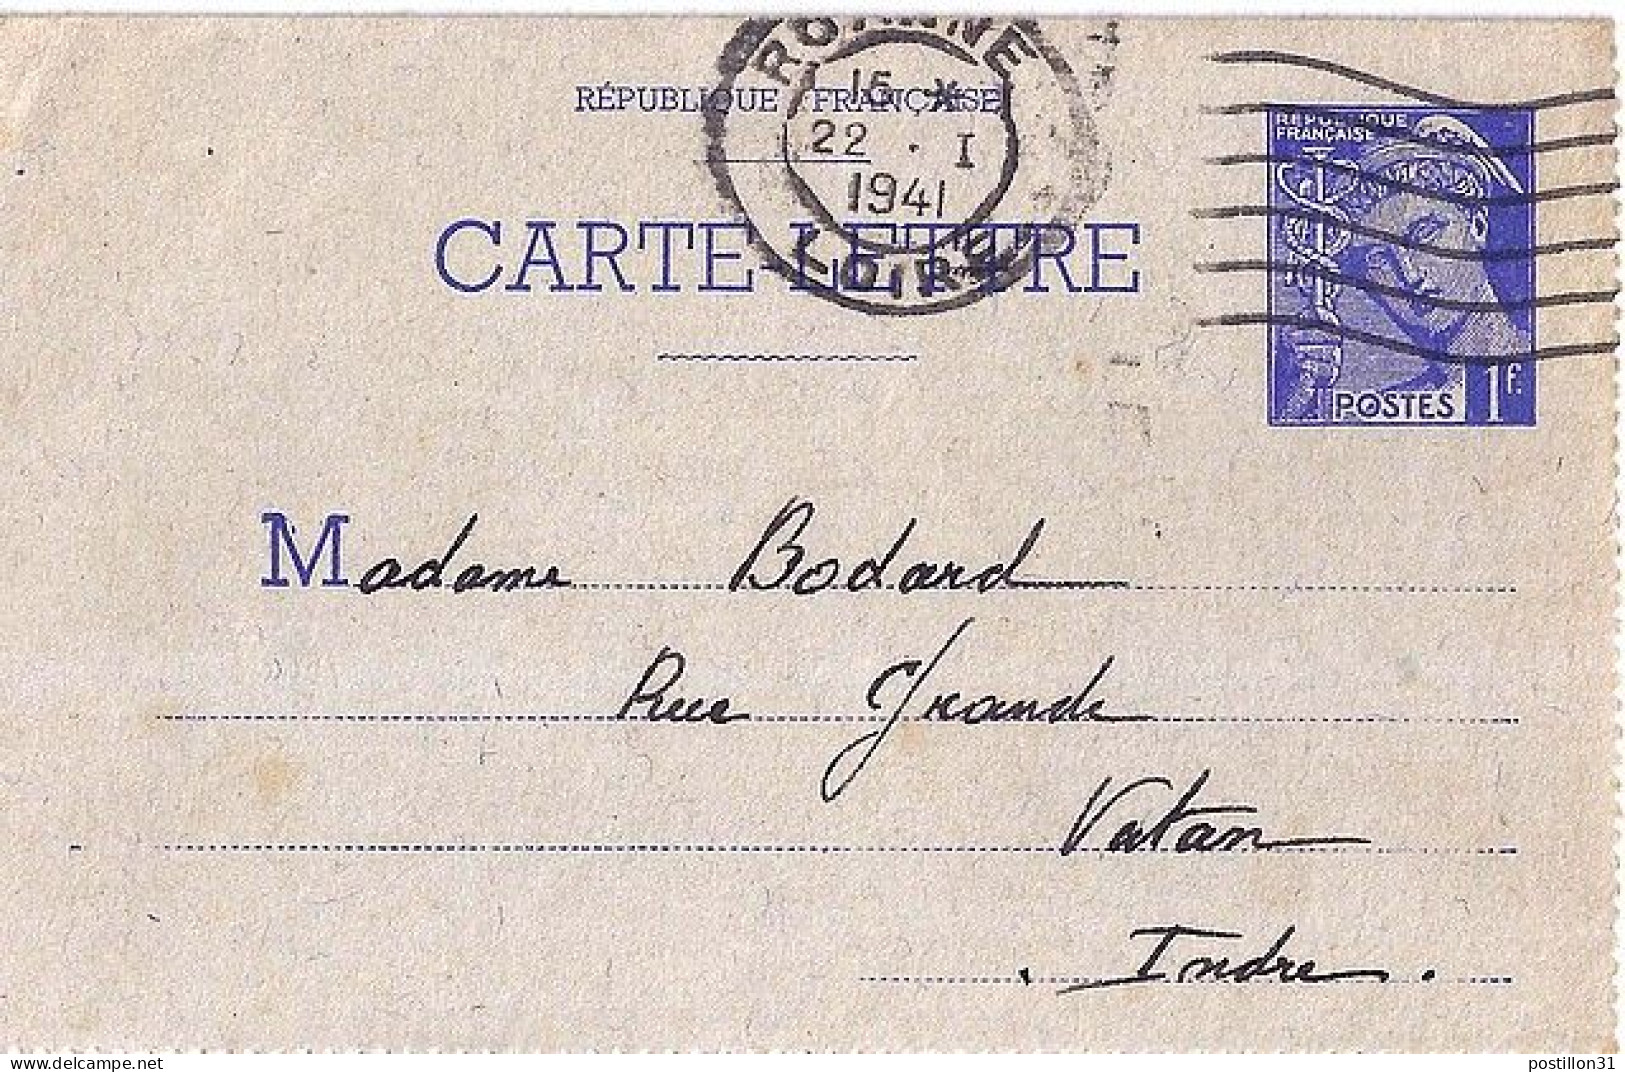 ROANNE
15 *
22 . I
1941
LOIRE
RÉPUBLIQUE FRANÇAISE
CARTE-LETTRE
RÉPUBLIQUE
FRANÇAISE
POSTES 1f.
Madame Bodard
Rue Grande
Vatan
. Indre .
www.delcampe.net
postillon31